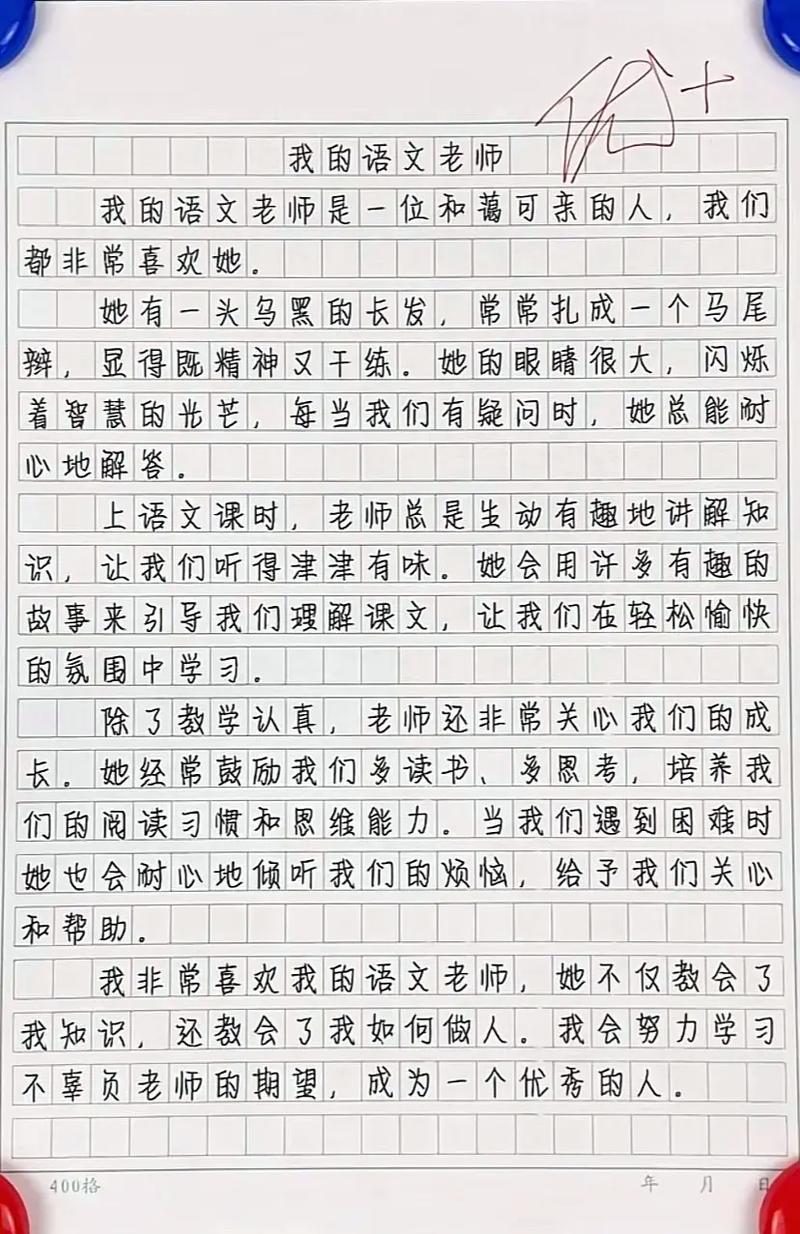 优+
我的语文老师
我的语文老师是一位和蔼可亲的人，我们
都非常喜欢她。
她有一头乌黑的长发，常常扎成一个马尾
辫，显得既精神又干练。她的眼睛很大，闪烁
着智慧的光芒，每当我们有疑问时，她总能耐
心地解答。
上语文课时，老师总是生动有趣地讲解知
识，让我们听得津津有味。她会用许多有趣的
故事来引导我们理解课文，让我们在轻松愉快
的氛围中学习。
除了教学认真，老师还非常关心我们的成
长。她经常鼓励我们多读书、多思考，培养我
们的阅读习惯和思维能力。当我们遇到困难时
她也会耐心地倾听我们的烦恼，给予我们关心
和帮助。
我非常喜欢我的语文老师，她不仅教会了
我知识，还教会了我如何做人。我会努力学习
不辜负老师的期望，成为一个优秀的人。
400格 年 月 日